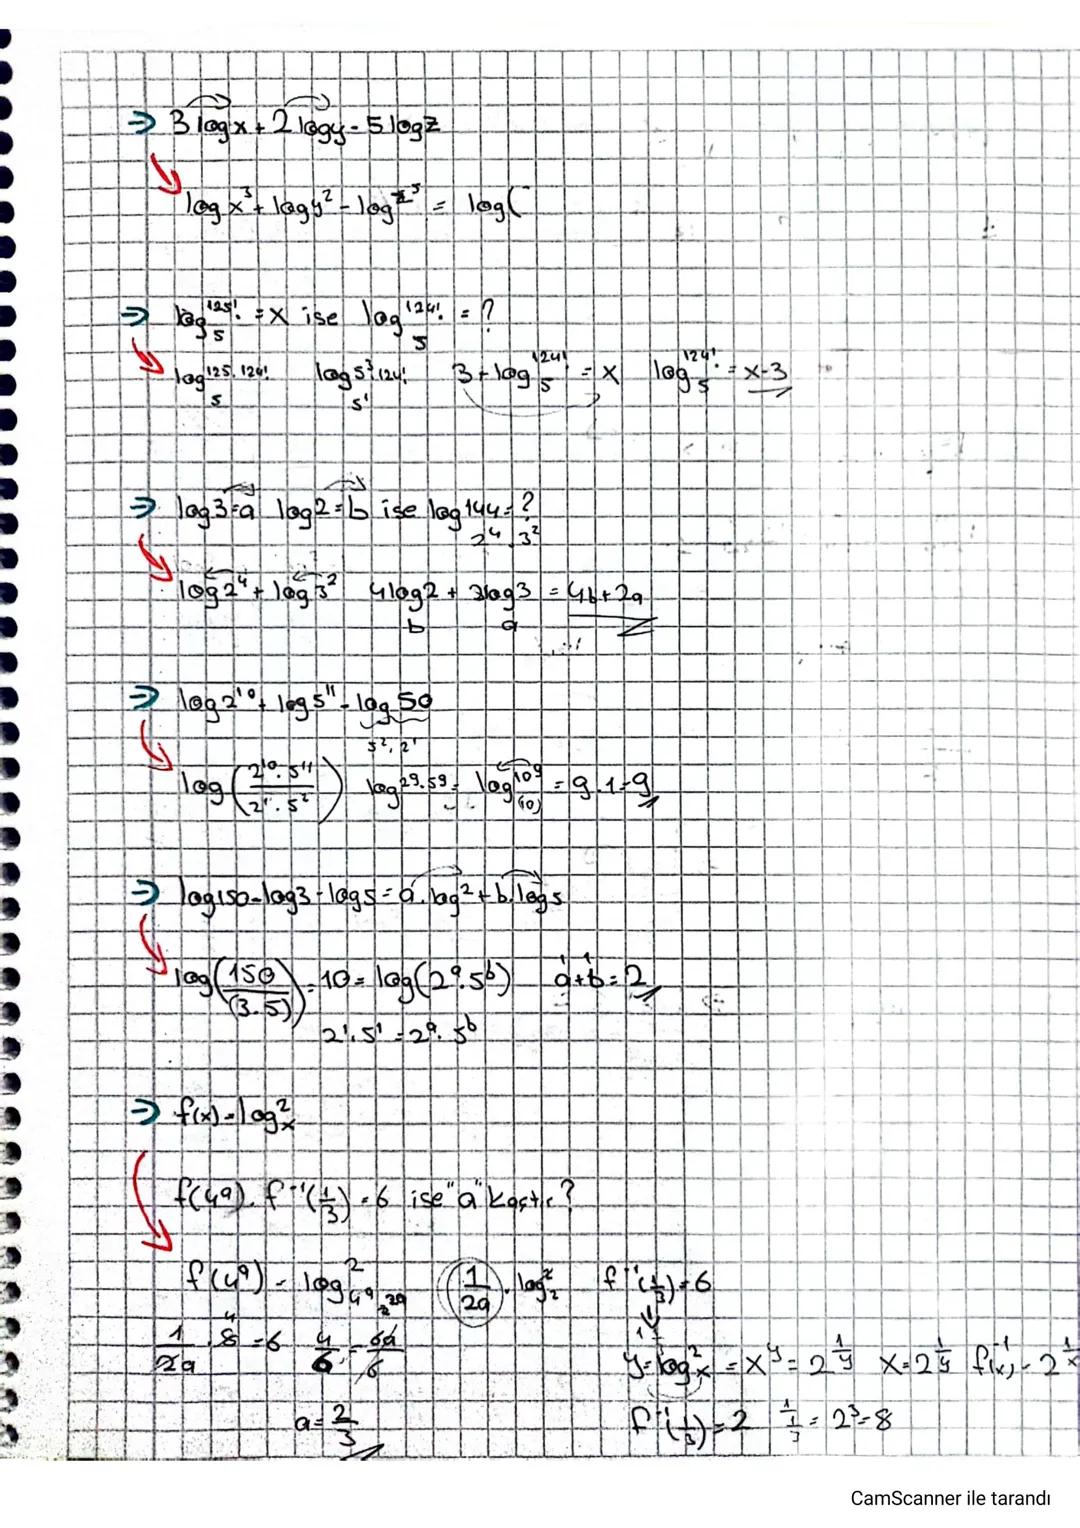 ⇒ 3logx + 2logy - 5logz
logx³ + logy² - logz⁵ = log(
⇒ log₅125! = x ise log₅124! = ?
log₅125.124! log₅¹5³.124! 3 + log₅124! = x log₅124! = x-3
⇒ log3=a log2=b ise log144=?
2⁴.3²
log2⁴ + log3² 4log2 + 2log3 = 4b+2a
b a
⇒ log2¹⁰ + log5¹¹ - log50
5².2¹
log(2¹⁰.5¹¹ / 2¹.5²) log2⁹.5⁹ = log₍₁₀₎10⁹ = 9.1=9
⇒ log150-log3-log5 = a.log2 + b.log5
log(150 / (3.5)) = 10 = log(2ᵃ.5ᵇ) a+b=2
2¹.5¹ = 2ᵃ.5ᵇ
⇒ f(x) = logₓ2
f(4ᵃ). f⁻¹(1/3) = 6 ise "a" kaçtır?
f(4ᵃ) = log4ᵃ2 2²ᵃ 1/2a . log₂2 f⁻¹(1/3)=6
1/2a . 8 = 6 4/6 = 6a/6 y = logₓ2 = xʸ = 2 1/y x=2 1/y f⁻¹(x) = 2 1/x
a = 2/3 f⁻¹(1/3) = 2 1/(1/3) = 2³ = 8
CamScanner ile tarandı